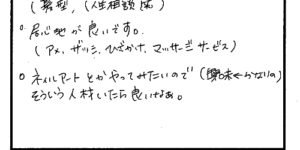 (髪型、(人生相談 法)
○ 居心地が良いです。
(アメ、ザッシ、ひざかけ、マッサージサービス)
○ ネイルアートとかやってみたいので (興味
そういう人材いたら良いなぁ。